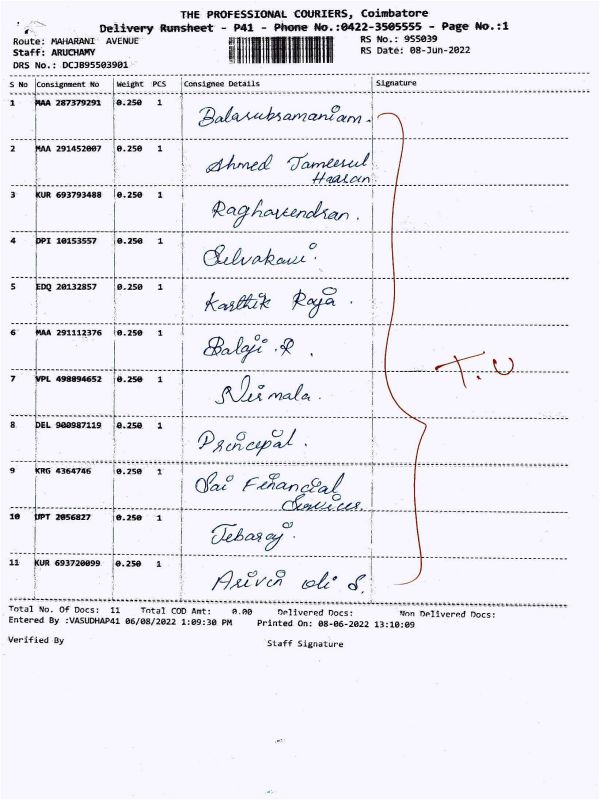 THE PROFESSIONAL COURIERS, Coimbatore
Delivery Runsheet - P41 - Phone No.:0422-3505555 - Page No.:1
Route: MAHARANI AVENUE RS No.: 955039
Staff: ARUCHAMY RS Date: 08-Jun-2022
DRS No.: DCJ895503901
S No Consignment No Weight PCS Consignee Details Signature
1 MAA 287379291 0.250 1 Balasubramaniam.
2 MAA 291452007 0.250 1 Ahmed Jameesul
Haasan
3 KUR 693793488 0.250 1 Raghavendran.
4 DPI 10153557 0.250 1 Selvakavi.
5 EDQ 20132857 0.250 1 Karthik Raja.
6 MAA 291112376 0.250 1 Balaji.R.
7 VPL 498894652 0.250 1 Nirmala.
8 DEL 900987119 0.250 1 Principal.
9 KRG 4364746 0.250 1 Sai Financial
Services.
10 UPT 2056827 0.250 1 Jebaraj.
11 KUR 693720099 0.250 1 Arivu oli S.
T.U
Total No. Of Docs: 11 Total COD Amt: 0.00 Delivered Docs: Non Delivered Docs:
Entered By :VASUDHAP41 06/08/2022 1:09:30 PM Printed On: 08-06-2022 13:10:09
Verified By Staff Signature